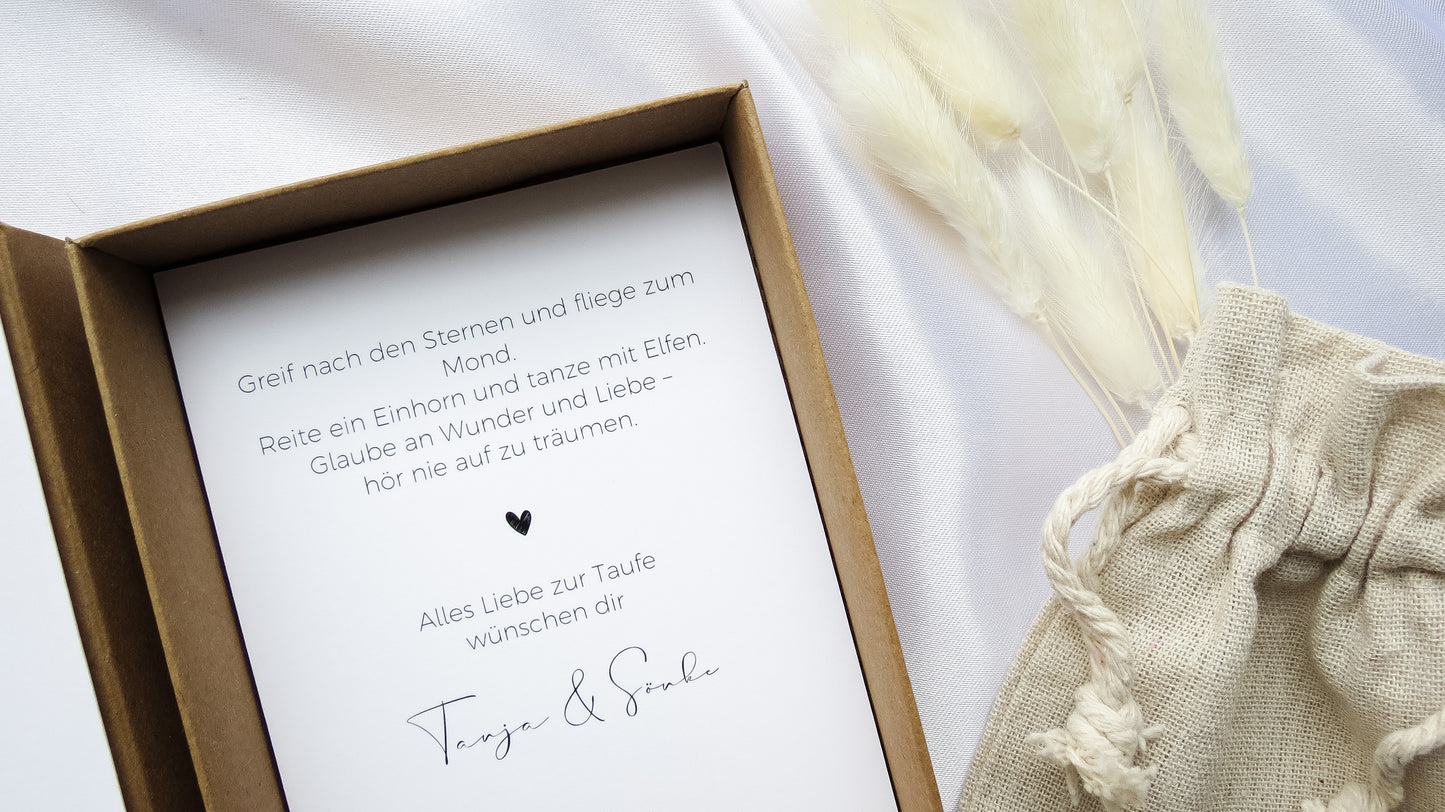 Greif nach den Sternen und fliege zum
Mond.
Reite ein Einhorn und tanze mit Elfen.
Glaube an Wunder und Liebe –
hör nie auf zu träumen.
Alles Liebe zur Taufe
wünschen dir
Tanja & Sönke